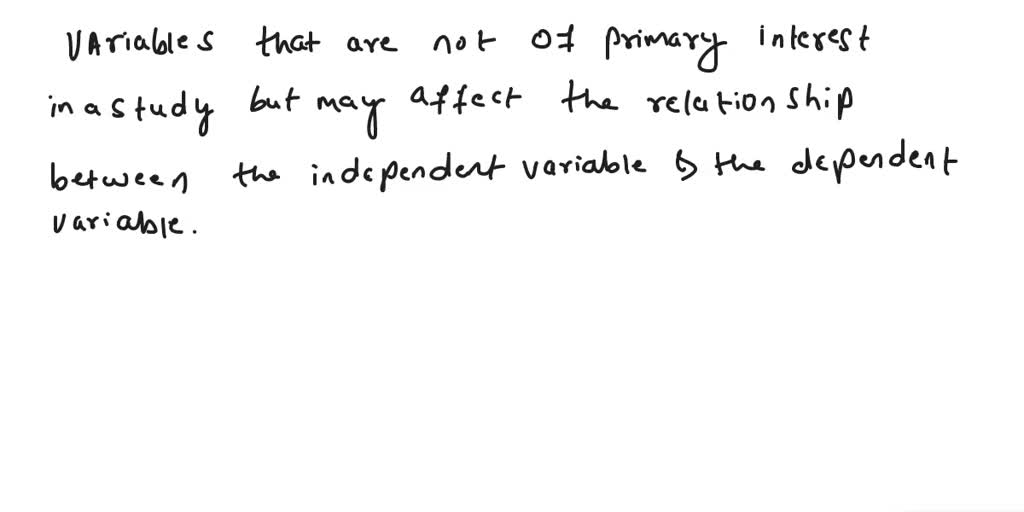 Variables that are not of primary interest
in a study but may affect the relationship
between the independent variable & the dependent
variable.